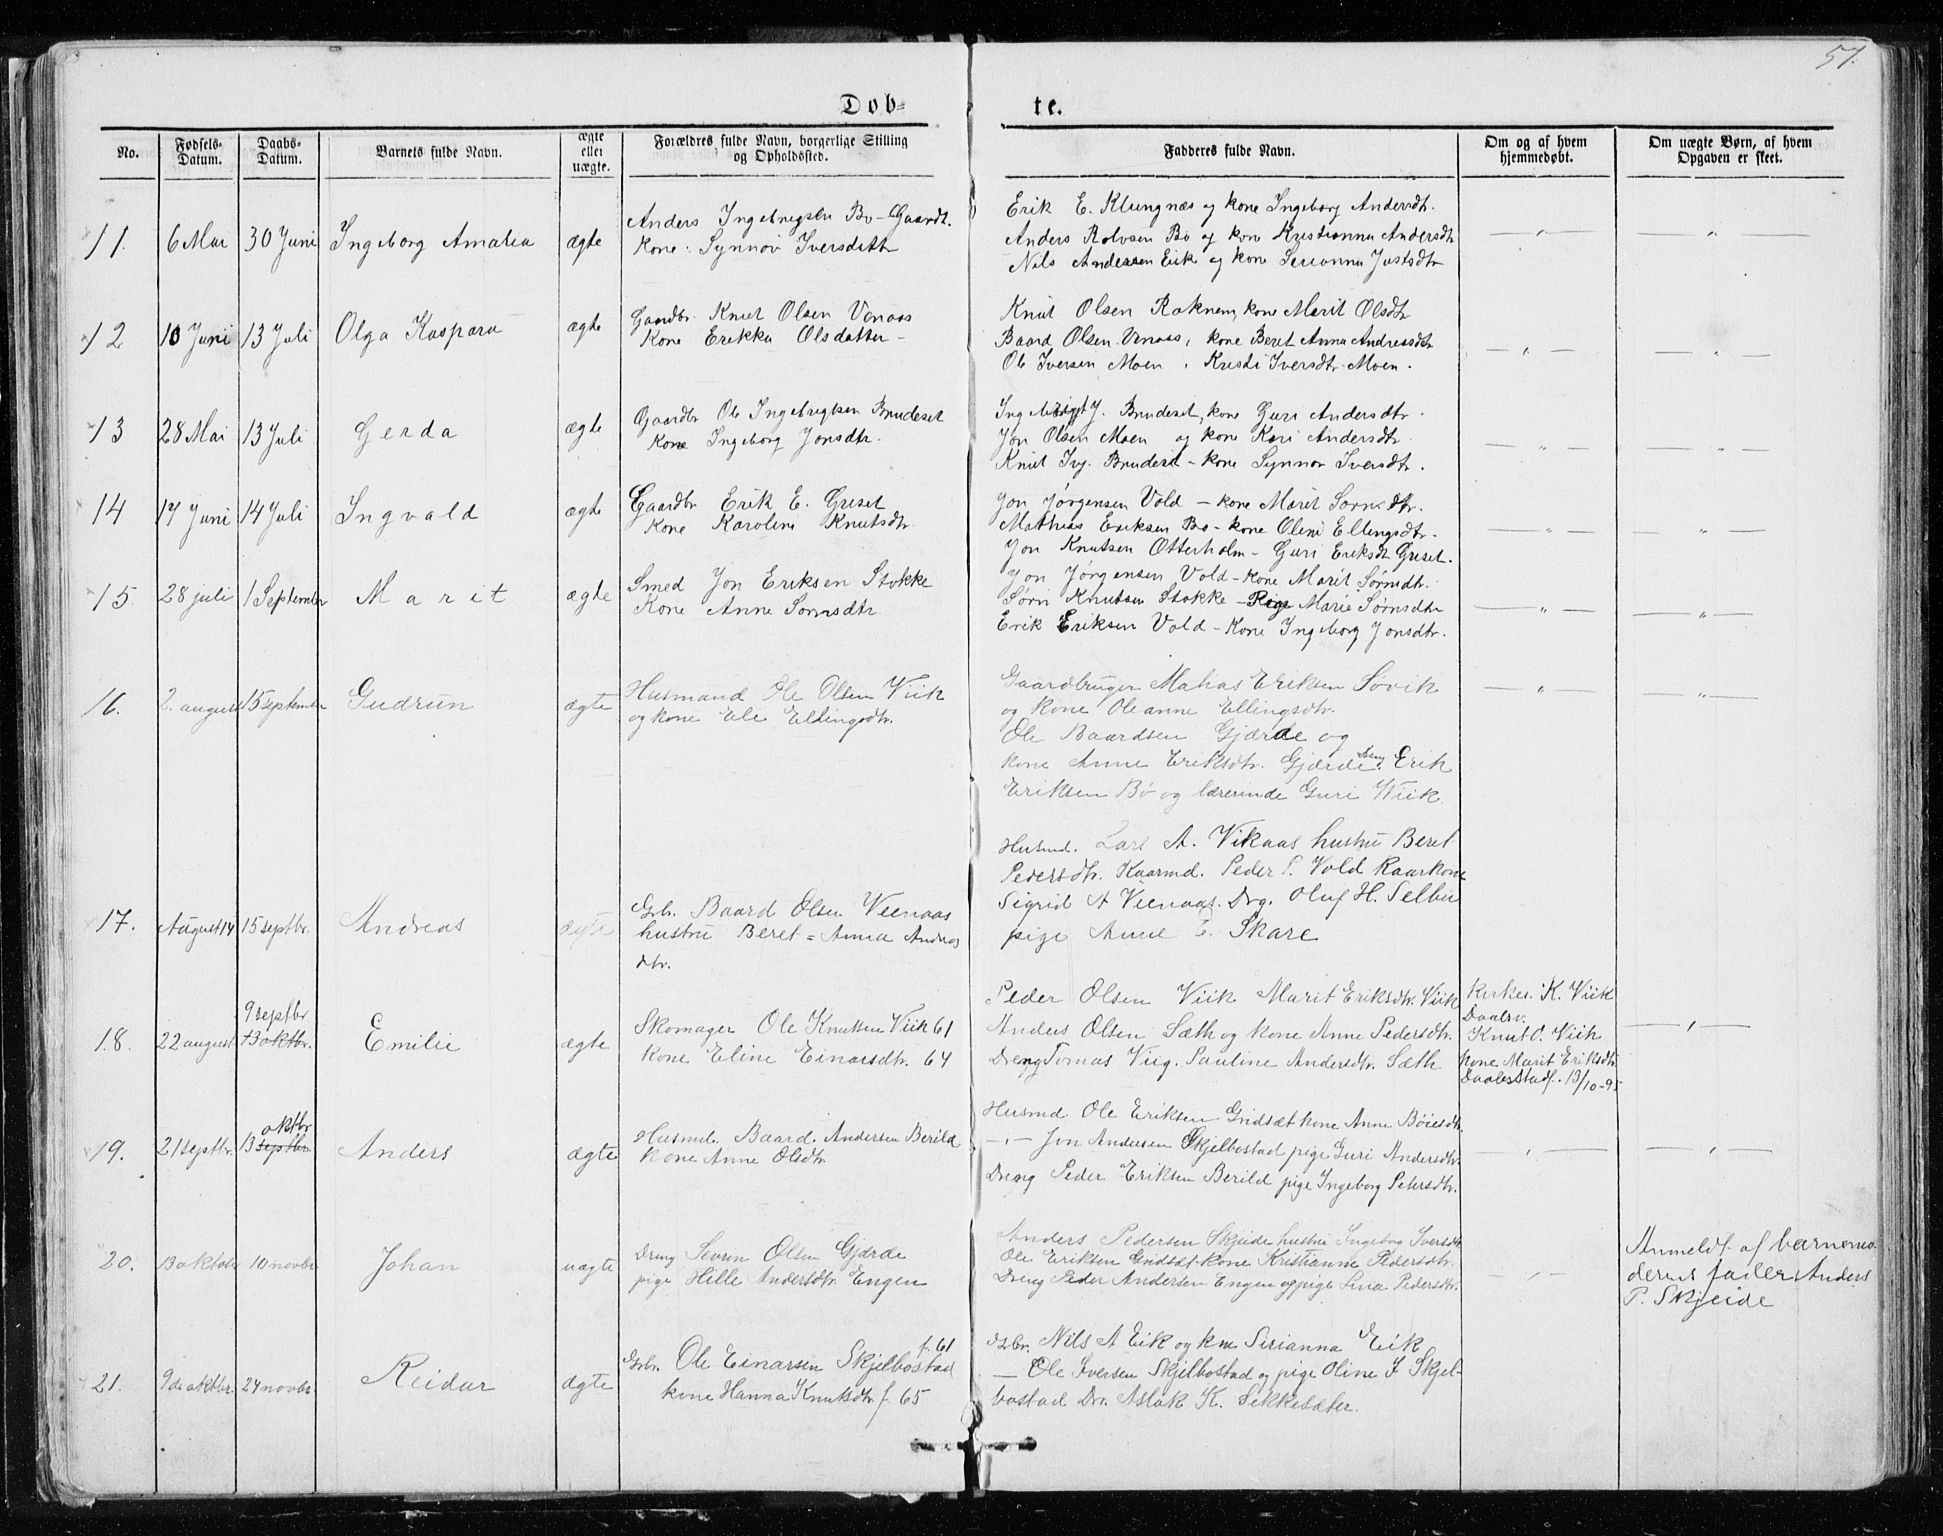 57.
Døb-
te.
No.
Fødsels-
Datum.
Daabs-
Datum.
Barnets fulde Navn.
ægte
eller
uægte.
Forældres fulde Navn, borgerlige Stilling
og Opholdssted.
Fadderes fulde Navn.
Om og af hvem
hjemmedøbt.
Om uægte Børn, af hvem
Opgaven er skeet.
11. 6 Mai 30 Juni Ingeborg Amalia ægte
Anders Ingebrigtsen Bo - Gaardt.
Kone: Synnøv Iversdattr
Erik E. Klungnæs og kone Ingeborg Andersdtr.
Anders Rolvsen Bo og kone Kristianna Andersdtr
Nils Andersen Eik og kone Serianna Jastsdtr
— " — — " —
12 10 Juni 13 Juli Olga Kaspara ægte
Gaardbr. Knut Olsen Venaas
Kone Erikka Olsdatter -
Knut Olsen Raknem, kone Marit Olsdtr
Baard Olsen Venaas, kone Beret Anna Andreasdtr
Ole Iversen Moen, Kristi Iversdtr Moen.
— " — — " —
13 28 Mai 13 Juli Gerda ægte
Gaardbr Ole Ingebrigtsen Brudeset
Kone Ingeborg Jonsdtr.
Ingebrigt J. Brudeset, kone Guri Andersdtr.
Jon Olsen Moen og kone Kari Andersdtr.
Knut Ing. Brudeset - kone Synnov Iversdtr.
— " — — " —
14 17 Juni 14 Juli Ingvald ægte
Gaardbr Erik E. Griset
Kone Karoline Knutsdtr
Jon Jørgensen Vold - kone Marit Sørnsdtr.
Mathias Eriksen Bo - kone Oleni Ellingsdtr.
Jon Knutsen Otterholm - Guri Eriksdt Griset.
— " — — " —
15 28 juli 1 September Marit ægte
Smed Jon Eriksen Stokke
Kone Anne Sørnsdtr.
Jon Jørgensen Vold - kone Marit Sørnsdtr.
Sørn Knutsen Stokke - Pige Marie Sørnsdtr
Erik Eriksen Vold - Kone Ingeborg Jonsdtr.
— " — — " —
16. 2. august 15 september Gudrun ægte
Husmand Ole Olsen Viik
og kone Eli Ellingsdtr.
Gaardbruger Mathias Eriksen Søvik
og kone Oleanne Ellingsdtr.
Ole Baardsen Gjærde og
kone Anne Eriksdtr. Gjærde. Dreng Erik
Eriksen Bø og lærerinde Guri Wiik.
— " — — " —
17. August 14 15 septbr. Andreas ægte
Grbr. Baard Olsen Veenaas
hustru Beret = Anna Andreas
dtr.
Husmd. Lars A. Vikaas hustru Beret
Pedersdtr. Kaarmd. Peder P. Vold Kaarkone
Sigrid A Veenaas. Drg. Oluf H. Selbu
pige Anne E. Skare
18. 22 august 9 septbr 13 oktbr. Emilie ægte
Skomager Ole Knutsen Viik 61
kone Eline Einarsdtr. 64
Peder Olsen Viik Marit Eriksdtr. Viik
Anders Olsen Sæth og kone Anne Pedersdtr.
Dreng Tomas Viig. Pauline Andersdtr. Sæth
Kirkes. K. Viik
Daabsv.
Knut O. Viik
kone Marit Eriksdtr.
Daabs Stadf. 13/10-95
— " —
19. 21 septbr. 13 septbr oktbr Anders ægte
Husmd. Baard Andersen Berild
kone Anne Olsdtr
Husmd. Ole Eriksen Gridsæt kone Anne Bøiesdtr.
—"— Jon Andersen Skjelbostad pige Guri Andersdtr.
Dreng Peder Eriksen Berild pige Ingeborg Petersdtr.
— " — — " —
20. 13 oktober 10 novbr. Johan uægte
Dreng Sevrin Olsen Gjærde
pige Hille Andersdtr. Engen
Anders Pedersen Skjeide hustru Ingeborg Iversdtr
Ole Eriksen Gridsæt kone Kristianne Pedersdtr.
Dreng Peder Andersen Engen og pige Lina Pedersdtr.
— " —
Anmeldt af barnemo
derens fader Anders
P. Skjeide
21. 9de oktbr. 24 novbr. Reidar ægte
Grbr. Ole Einarsen Skjelbostad f. 61
kone Hanna Knutsdtr f. 65
Grbr. Nils A Eik og kone Sirianna Eik
— Ole Iversen Skjelbostad og pige Oline I Skjel-
bostad Dr. Aslak K. Sekkesæter.